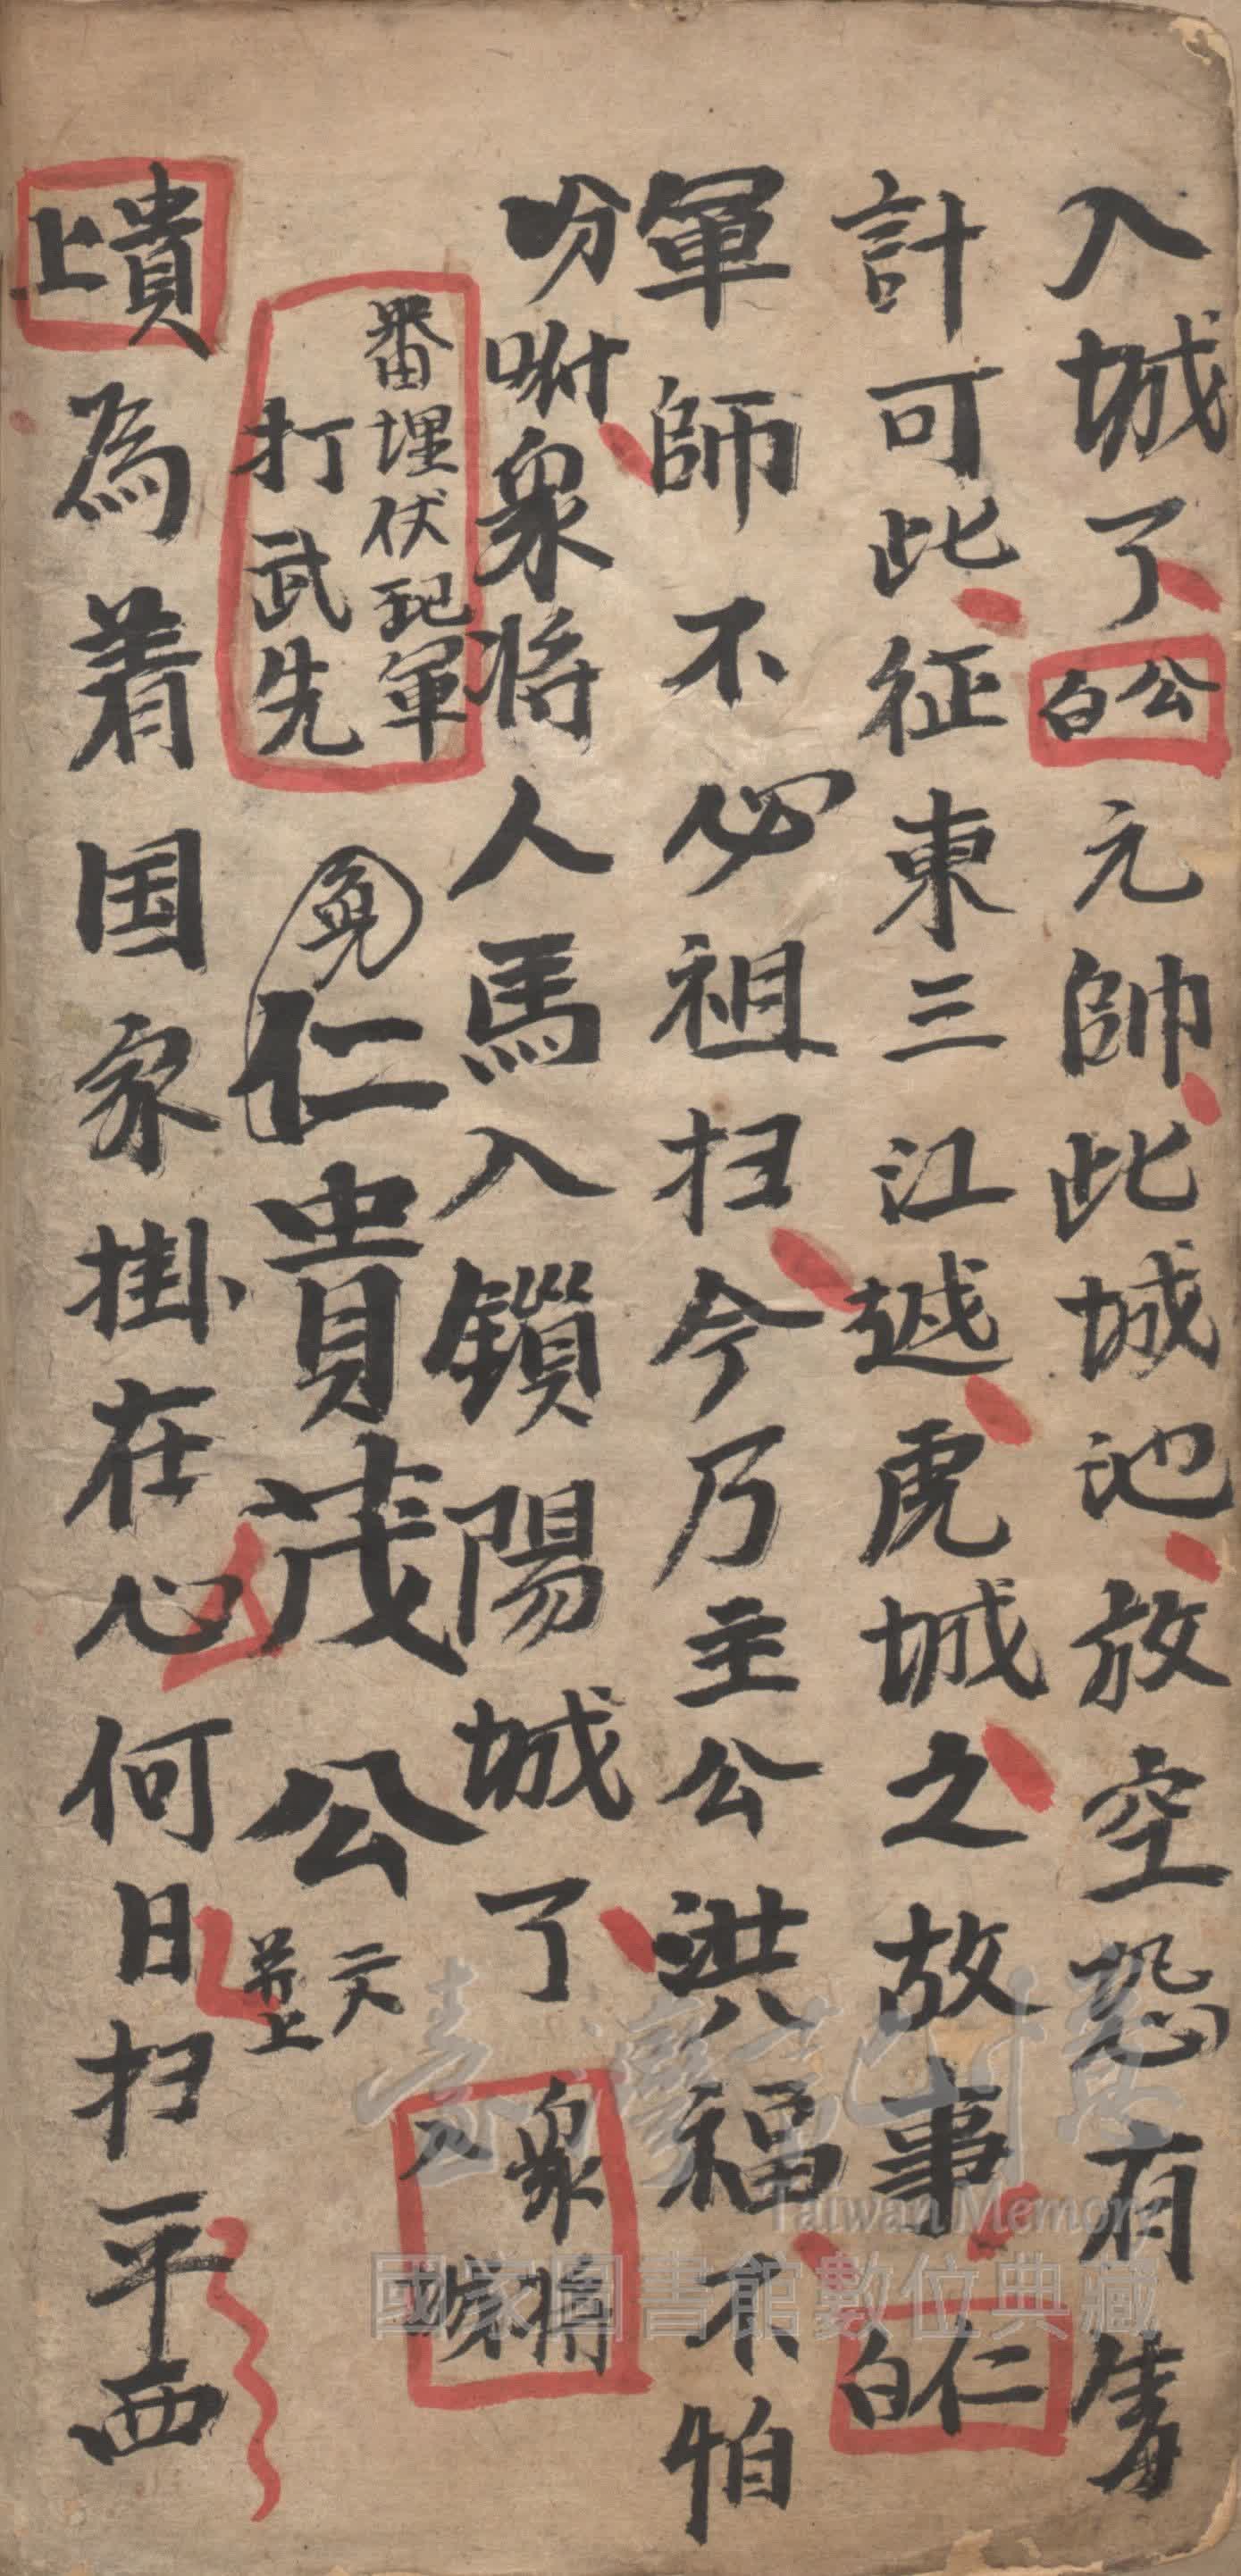 入城了公白元帥此城池放空恐有隻
計可比征東三江越虎城之故事仁白
軍師不必祖扫今乃主公洪福不怕
吩咐衆将人馬入鎖陽城了衆将入城
番埋伏現軍
打武先
仁貴茂公二天並上
貴上為着国家掛在心何日扫平西
Taiwan Memory
國家圖書館數位典藏